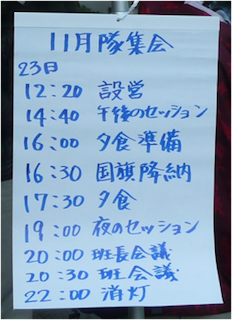 11月隊集会
23日
12:20 設営
14:40 午後のセッション
16:00 夕食準備
16:30 国旗降納
17:30 夕食
19:00 夜のセッション
20:00 班長会議
20:30 班会議
22:00 消灯